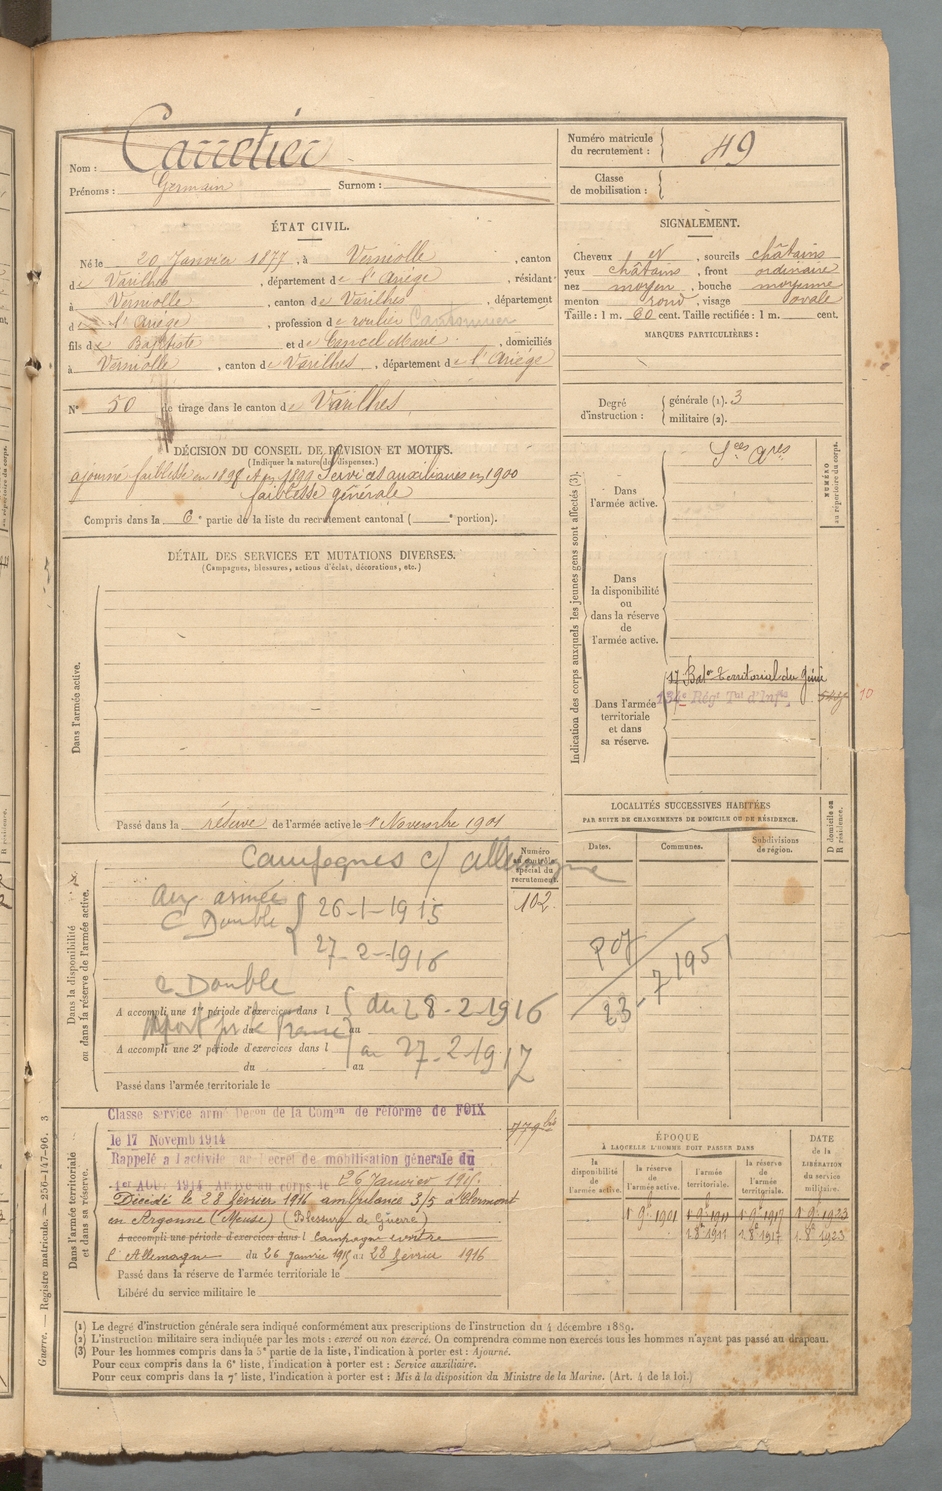 Nom : Carretier
Prénoms : Germain Surnom :
Numéro matricule du recrutement : 49
Classe de mobilisation :
ÉTAT CIVIL.
Né le 20 Janvier 1877, à Verniolle, canton
de Varilhes, département de l'Ariège, résidant
à Verniolle, canton de Varilhes, département
de l'Ariège, profession de roulier Cantonnier
fils de Baptiste et de Cancel Marie, domiciliés
à Verniolle, canton de Varilhes, département de l'Ariège
N° 50 de tirage dans le canton de Varilhes.
SIGNALEMENT.
Cheveux et, sourcils châtains
yeux châtains, front ordinaire
nez moyen, bouche moyenne
menton rond, visage ovale
Taille : 1 m. 60 cent. Taille rectifiée : 1 m. cent.
MARQUES PARTICULIÈRES :
Degré d'instruction : générale (1). 3
militaire (2).
DÉCISION DU CONSEIL DE RÉVISION ET MOTIFS.
(Indiquer la nature des dispenses.)
ajourné faiblesse en 1898 et en 1899 Services auxiliaires en 1900
faiblesse générale
Compris dans la 6e partie de la liste du recrutement cantonal ( e portion).
DÉTAIL DES SERVICES ET MUTATIONS DIVERSES.
(Campagnes, blessures, actions d'éclat, décorations, etc.)
Dans l'armée active.
Passé dans la réserve de l'armée active le 1 Novembre 1901
Indication des corps auxquels les jeunes gens sont affectés (3).
NUMÉRO au répertoire du corps.
Dans l'armée active.
Sces Ares
Dans la disponibilité ou dans la réserve de l'armée active.
Dans l'armée territoriale et dans sa réserve.
17 Baton Territorial du Génie
134e Régt Tal d'Infie
10
LOCALITÉS SUCCESSIVES HABITÉES
PAR SUITE DE CHANGEMENTS DE DOMICILE OU DE RÉSIDENCE.
Dates. Communes. Subdivisions de région. D domicile ou R résidence.
Dans la disponibilité ou dans la réserve de l'armée active.
Numéro au contrôle spécial du recrutement.
102
Campagnes c/ allemagne
aux armées
C Double
26-1-1915
27-2-1916
C Double
A accompli une 1re période d'exercices dans l
du 28-2-1916
du au
A accompli une 2e période d'exercices dans l
au 27-2-1917
du au
Passé dans l'armée territoriale le
23-7 195
Dans l'armée territoriale et dans sa réserve.
Classé service armé Décon de la Comon de réforme de FOIX
le 17 Novemb 1914
Rappelé à l'activité par Décret de mobilisation générale du
1er Août 1914 Arrivé au corps le 26 Janvier 1915.
Décédé le 28 février 1916 ambulance 3/5 à Clermont
en Argonne (Meuse) (Blessure de Guerre)
A accompli une période d'exercices dans l Campagne contre
l'Allemagne du 26 janvier 1915 au 28 février 1916
Passé dans la réserve de l'armée territoriale le
Libéré du service militaire le
ÉPOQUE
À LAQUELLE L'HOMME DOIT PASSER DANS
DATE DE LA LIBÉRATION du service militaire.
la disponibilité de l'armée active. la réserve de l'armée active. l'armée territoriale. la réserve de l'armée territoriale.
1 9e 1901 1 9e 1911 1 9e 1917 1 9e 1923
1 8e 1911 1 8e 1917 1 8e 1923
(1) Le degré d'instruction générale sera indiqué conformément aux prescriptions de l'instruction du 4 décembre 1889.
(2) L'instruction militaire sera indiquée par les mots : exercé ou non exercé. On comprendra comme non exercés tous les hommes n'ayant pas passé au drapeau.
(3) Pour les hommes compris dans la 5e partie de la liste, l'indication à porter est : Ajourné.
Pour ceux compris dans la 6e liste, l'indication à porter est : Service auxiliaire.
Pour ceux compris dans la 7e liste, l'indication à porter est : Mis à la disposition du Ministre de la Marine. (Art. 4 de la loi.)
Guerre. — Registre matricule. — 256-147-96. 3